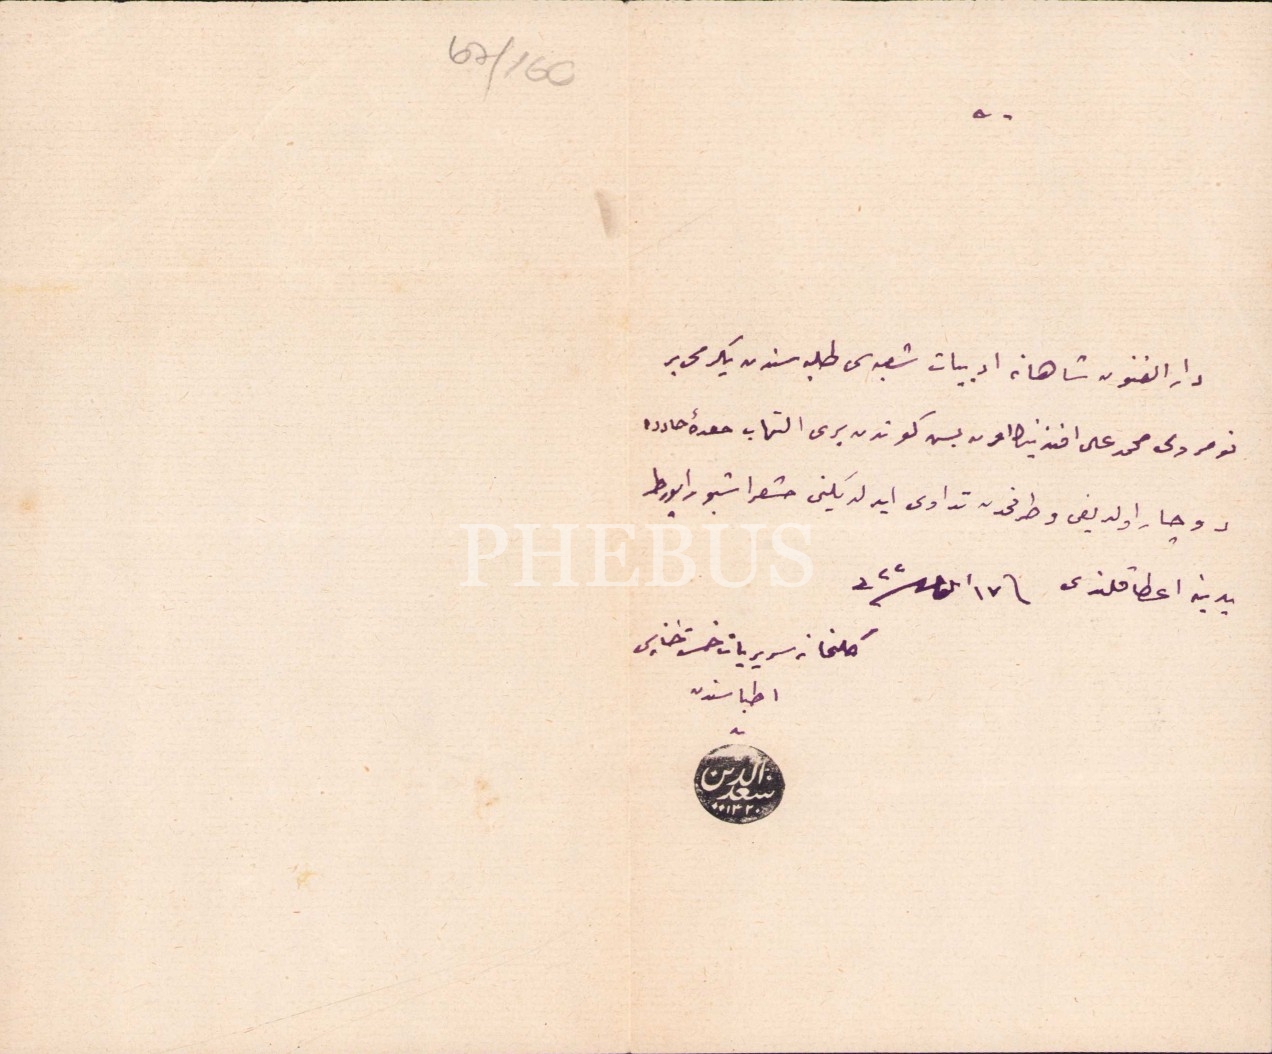 67/160
دار الفنون شاهانه ادبیات شعبه‌سی طلبه سندن یكرمی بر
نومرولی محمد علی افندینك اون بش كوندن بری التهاب معدۀ حاده‌یه
دوچار اولدیغی و طرفمدن تداوی ایدلدیكنی مشعر اشبو راپورط
PHEBUS
یدینه اعطا قلندی ١٧ سنه ٣٢٢
كلخانه سریریات خسته‌خانه‌سی
اطباسندن
سعد الدین
١٣٢٠